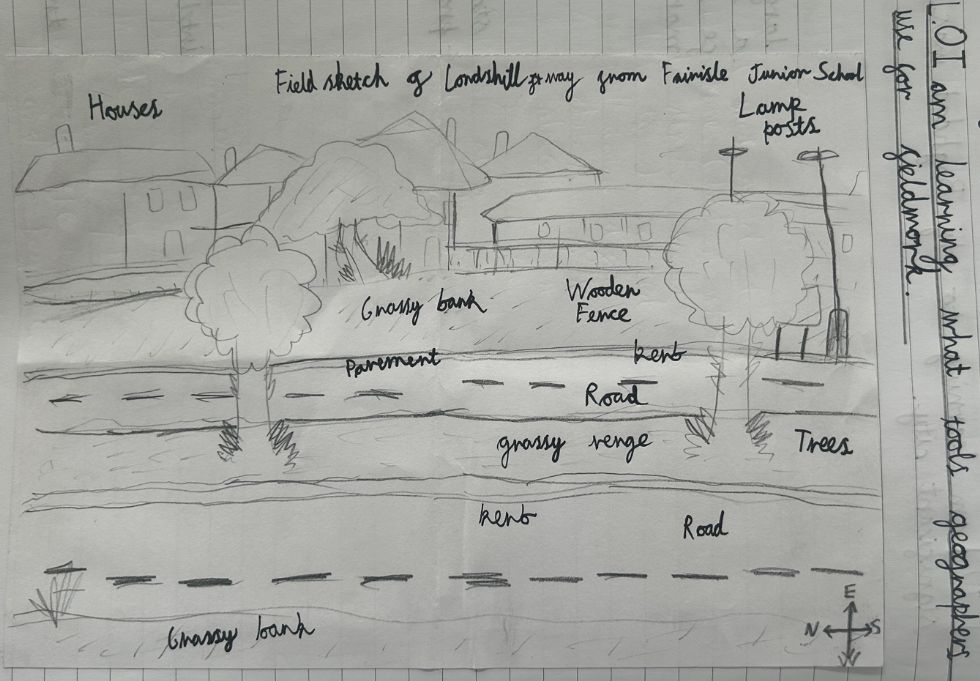 L.O I am learning what tools geographers
use for fieldwork.
Field sketch of Lordshill way from Fairisle Junior School
Houses
Lamp
posts
Grassy bank
Wooden
Fence
Pavement
kerb
Road
grassy verge
Trees
kerb
Road
Grassy bank
E
N
S
W